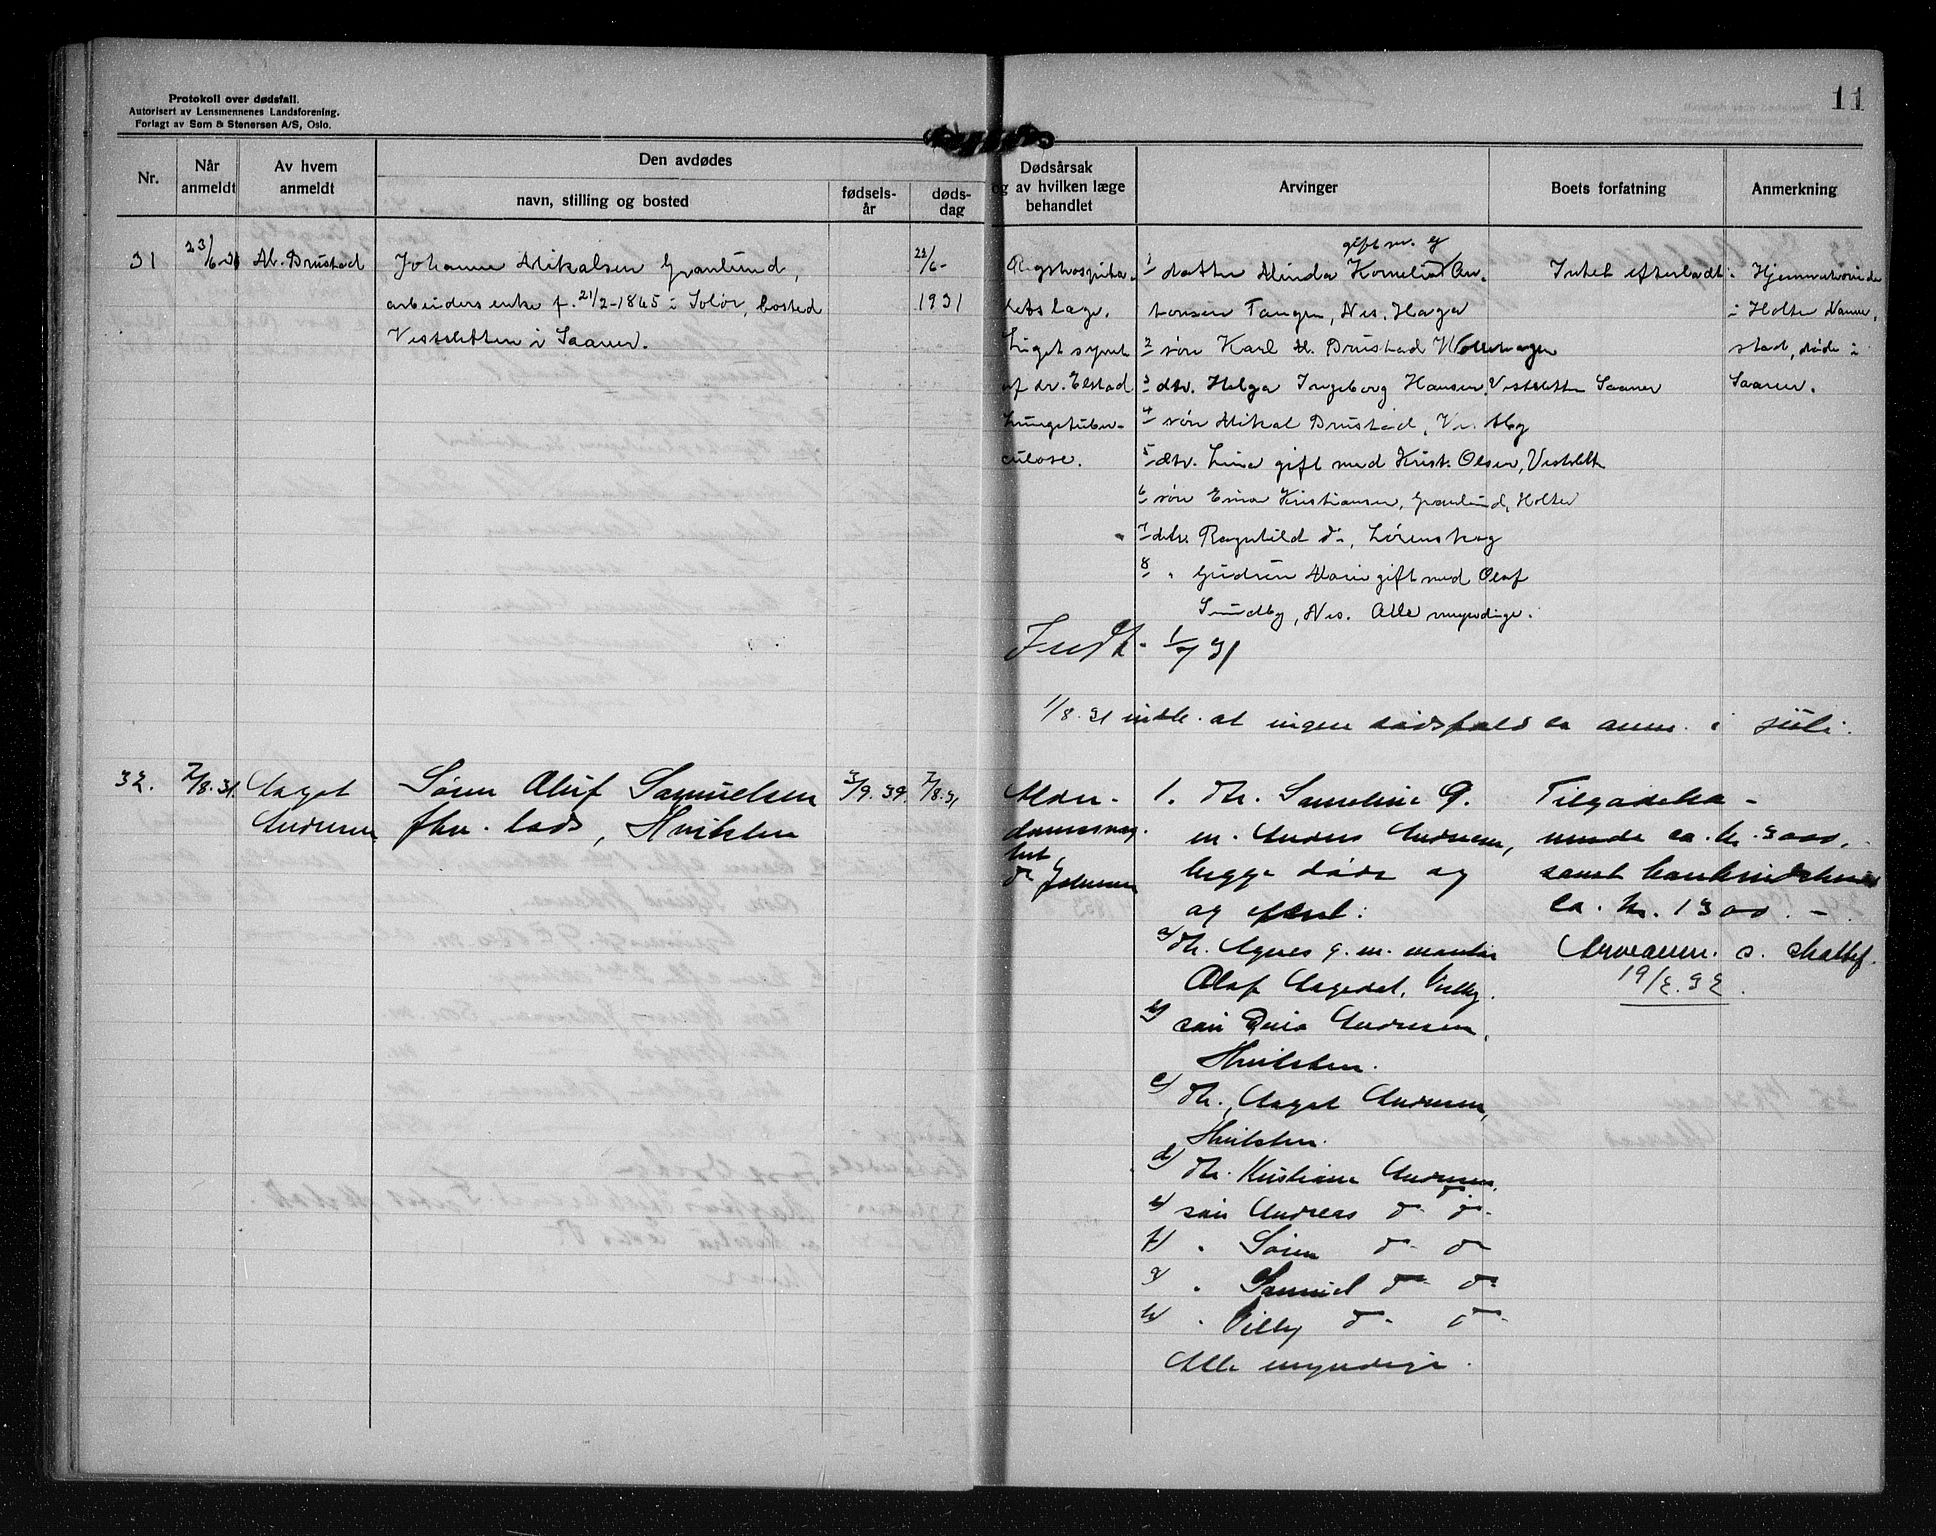 Protokoll over dødsfall.
Autorisert av Lensmennenes Landsforening.
Forlagt av Sem & Stenersen A/S, Oslo.
11
Nr.
Når anmeldt
Av hvem anmeldt
Den avdødes
navn, stilling og bosted
fødsels-år
døds-dag
Dødsårsak og av hvilken læge behandlet
Arvinger
Boets forfatning
Anmerkning
31
23/6-31
M. Brustad
Johanne Mikalsen Granlund,
arbeiders enke f. 21/2-1865 i Solør, bosted
Vestsletten i Saaner.
22/6-
1931
Rigshospita-
lets læge.
Liget synet
af dr. Elstad
Lungetuber-
culose.
gift m. 
1 datter Minda Kornelia An-
tonsen Tangen, Nes. Haga
2 søn Karl M. Brustad
3 dtr. Helga Ingeborg Hansen, Vestsletten Saaner
4 søn Mikal Brustad, Vestby
5 dtr. Lina gift med Krist. Olsen, Vestslett
6 søn Einar Kristiansen, Granlund, Holter
7 dtr. Ragnhild do, Lørenskog
8 " Gudrun Marie gift med Olaf
Sundby, Nes. Alle myndige.
Intet efterladt
Hjemmehørende
i Holter Nanne-
stad, døde i
Saaner.
Indb. 1/7 31
1/8.31 indb. at ingen dødsfald er anm. i juli.
32.
7/8.31.
Aagot
Andresen
Søren Oluf Samuelsen
fhv. lods, Hvitsten
3/9.39.
7/8.31
Alder-
domssvag-
het
dr Johnsen
1. dtr. Sameline g.
m. Anders Andresen,
begge døde og
og efterl:
a) dtr. Agnes g. m. montør
Olaf Aagedal,
b) søn Andresen,
Hvitsten.
c) dtr. Aagot Andresen,
Hvitsten.
d) dtr. Kristiane Andresen,
e) søn Andreas do do
f) " Søren do do
g) " Samuel do do
h) " Villy do do
Alle myndige.
Tilgodeha-
vende ca. kr. 3000,-
samt bankindskud
ca. kr. 1300.-
Arveanm. s. skattef.
19/2.32.